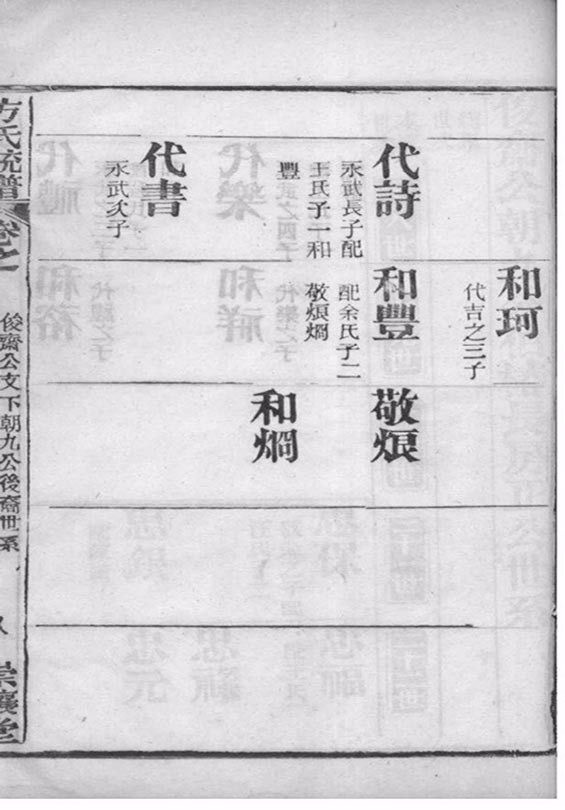 和珂
代吉之三子
代詩
永武長子配
王氏子一和
豐
和豐
配余氏子二
敬烺烱
敬烺
和烱
代書
永武次子
方氏統譜
卷之一
俊齋公支下朝九公後裔世系
八
崇讓堂